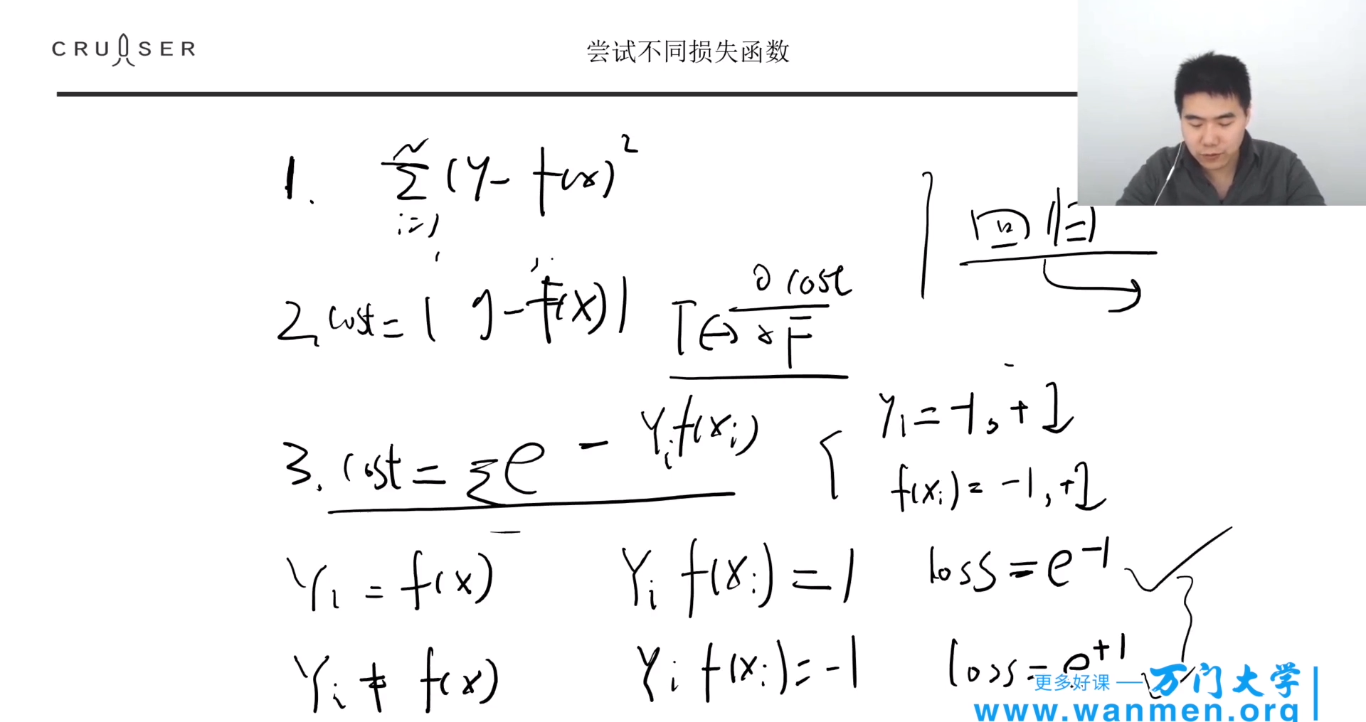 CRUISER
尝试不同损失函数
1. N∑i=1 (Y - f(x))²
回归
2. cost = | y - f(x) |
0 cost
T ↔ F
3. cost = Σ e^{- Yi f(xi)}
Yi = -1, +1
f(xi) = -1, +1
Yi = f(x) Yi f(xi) = 1 loss = e^{-1}
Yi ≠ f(x) Yi f(xi) = -1 loss = e^{+1}
更多好课 — 万门大学
www.wanmen.org